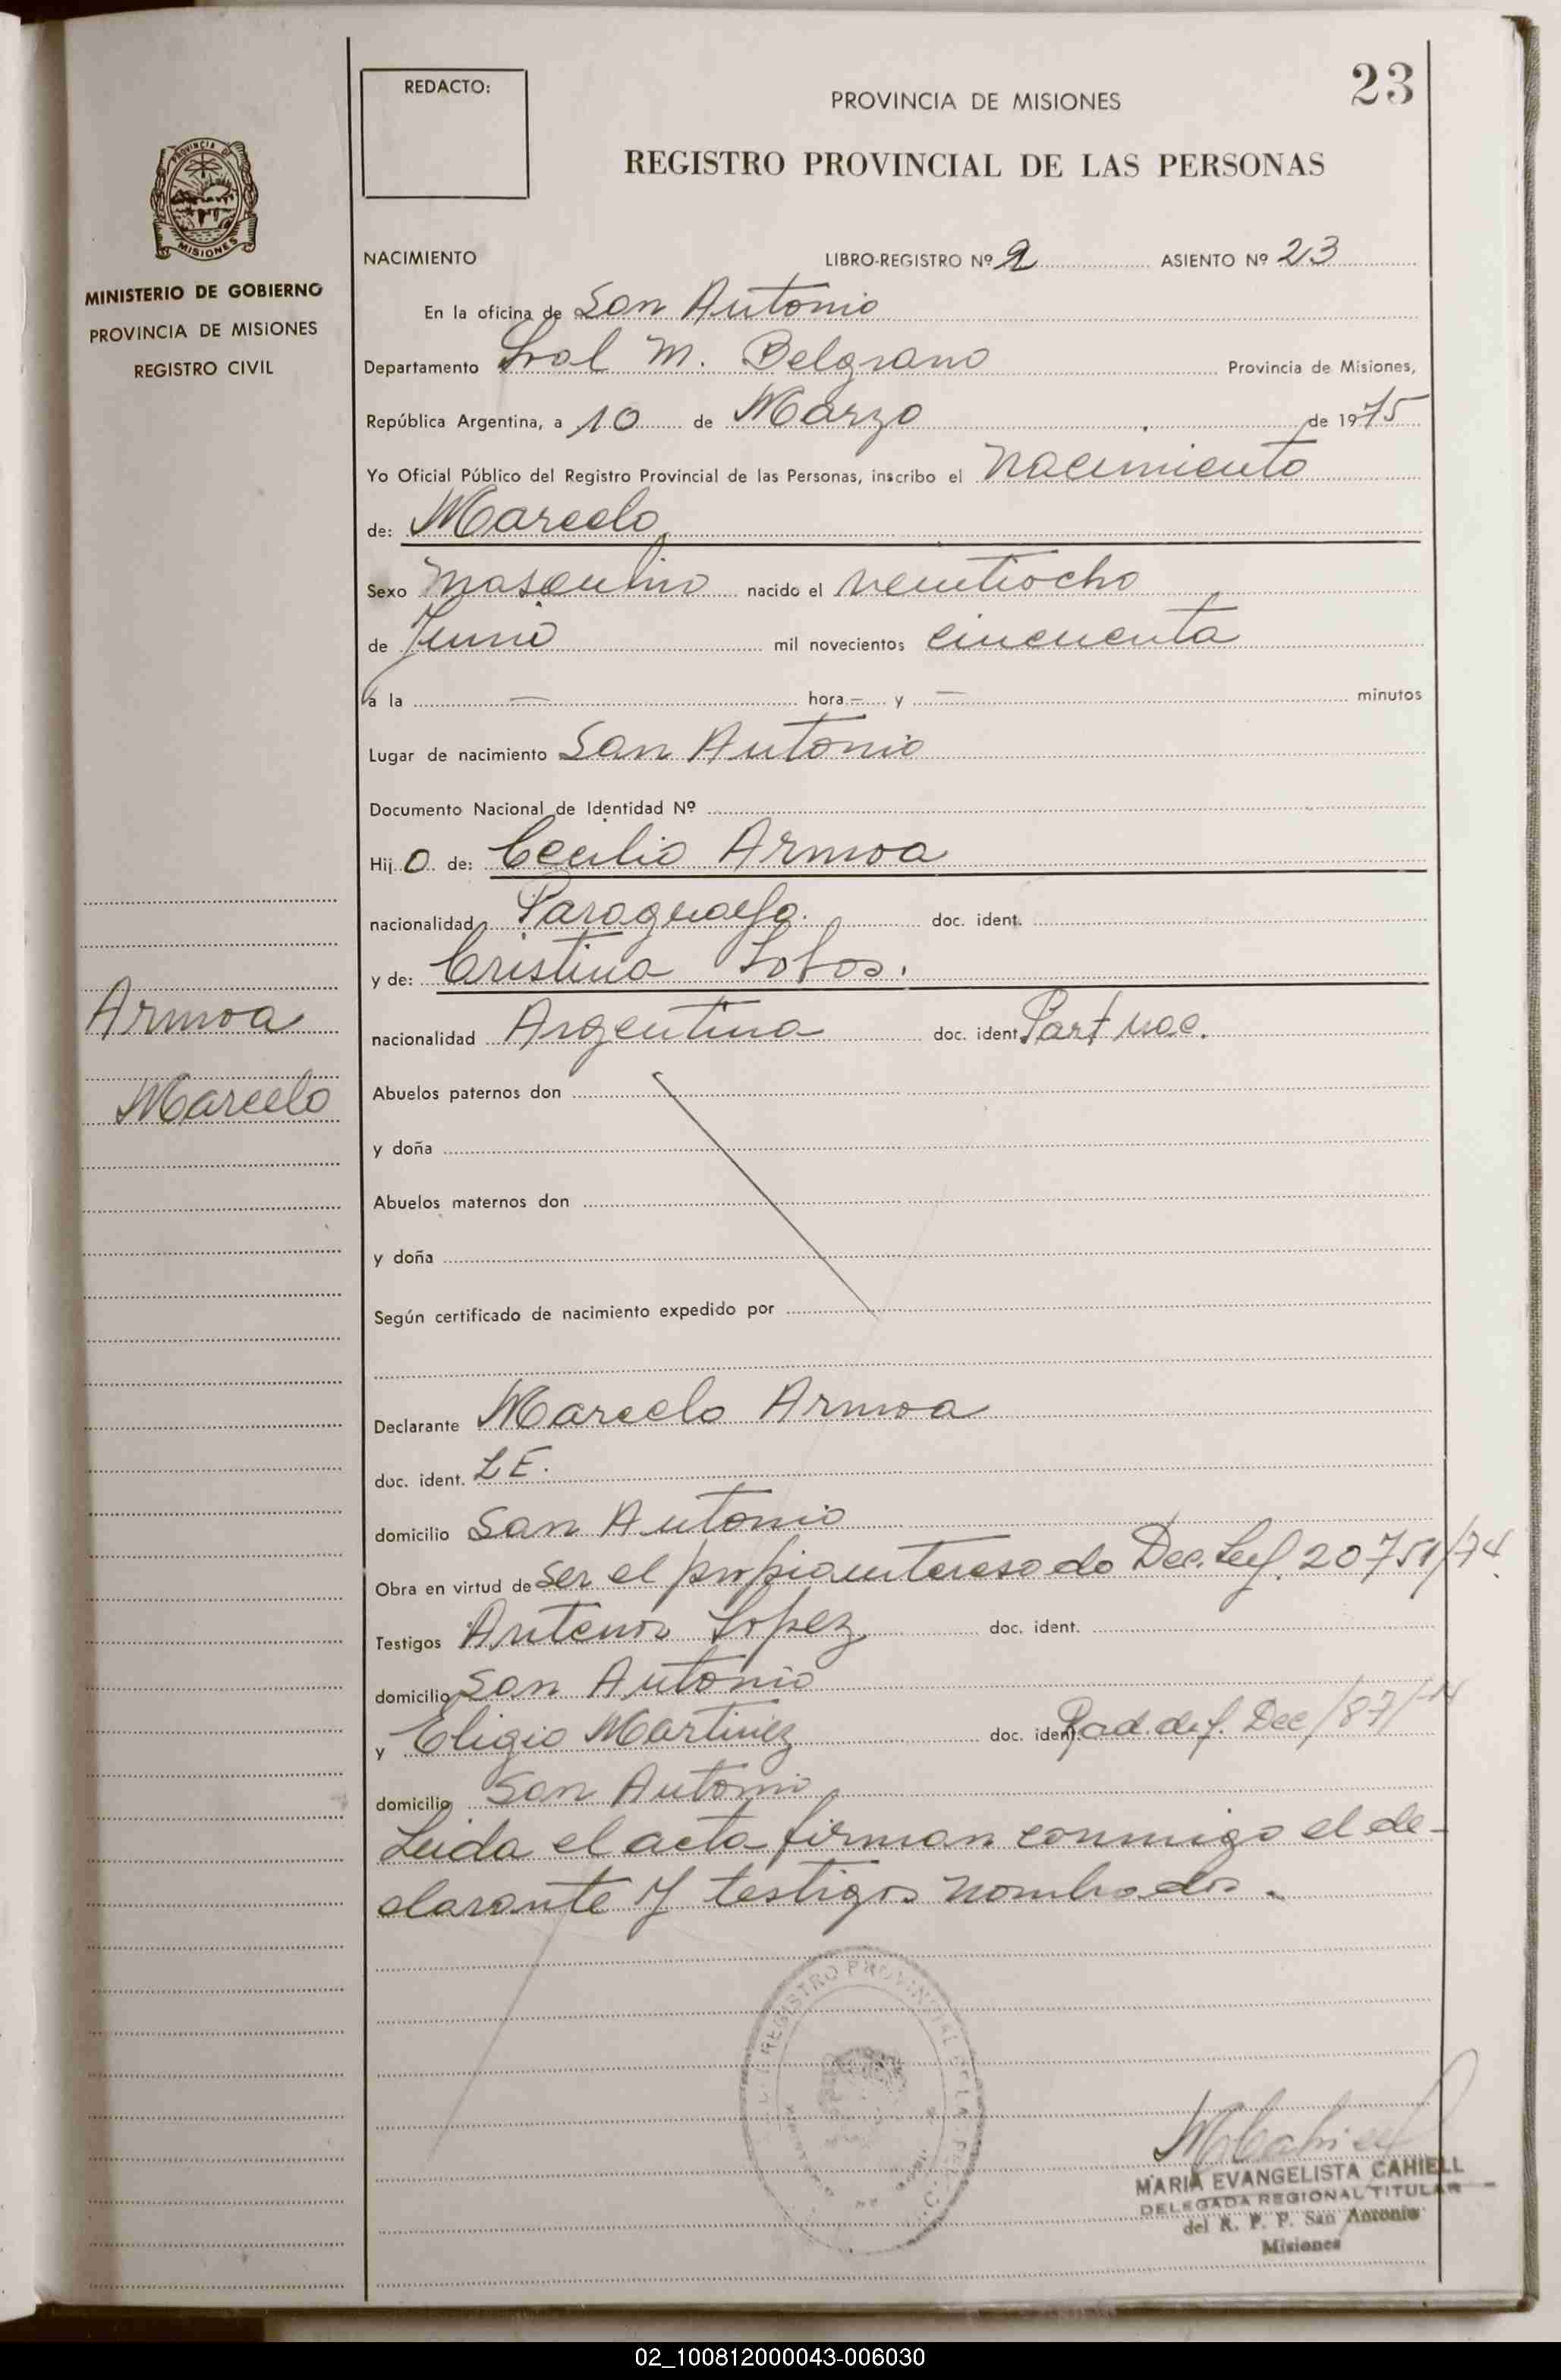 23
REDACTO:
PROVINCIA DE MISIONES
REGISTRO PROVINCIAL DE LAS PERSONAS
PROVINCIA DE MISIONES
MINISTERIO DE GOBIERNO
PROVINCIA DE MISIONES
REGISTRO CIVIL
NACIMIENTO LIBRO-REGISTRO Nº 2 ASIENTO Nº 23
En la oficina de San Antonio
Departamento Gral M. Belgrano Provincia de Misiones,
República Argentina, a 10 de Marzo de 1975
Yo Oficial Público del Registro Provincial de las Personas, inscribo el nacimiento
de: Marcelo
Sexo masculino nacido el veintiocho
de Junio mil novecientos cincuenta
a la — hora — y — minutos
Lugar de nacimiento San Antonio
Documento Nacional de Identidad Nº
Hij o de: Cecilio Armoa
nacionalidad Paraguaya. doc. ident.
y de: Cristina Lobos.
nacionalidad Argentina doc. ident. Part nac.
Armoa
Marcelo
Abuelos paternos don
y doña
Abuelos maternos don
y doña
Según certificado de nacimiento expedido por
Declarante Marcelo Armoa
doc. ident. L E.
domicilio San Antonio
Obra en virtud de ser el propio interesado Dec. Ley. 20751/74.
Testigos Antenor Lopez doc. ident.
domicilio San Antonio
y Eligio Martinez doc. ident. Dec /87/
domicilio San Antonio
Leida el acta firman conmigo el de-
clarante y testigos nombrados.
REGISTRO PROVINCIAL DE LA
MARIA EVANGELISTA CAHIELL
DELEGADA REGIONAL TITULAR
del R. P. P. San Antonio
Misiones
02_100812000043-006030